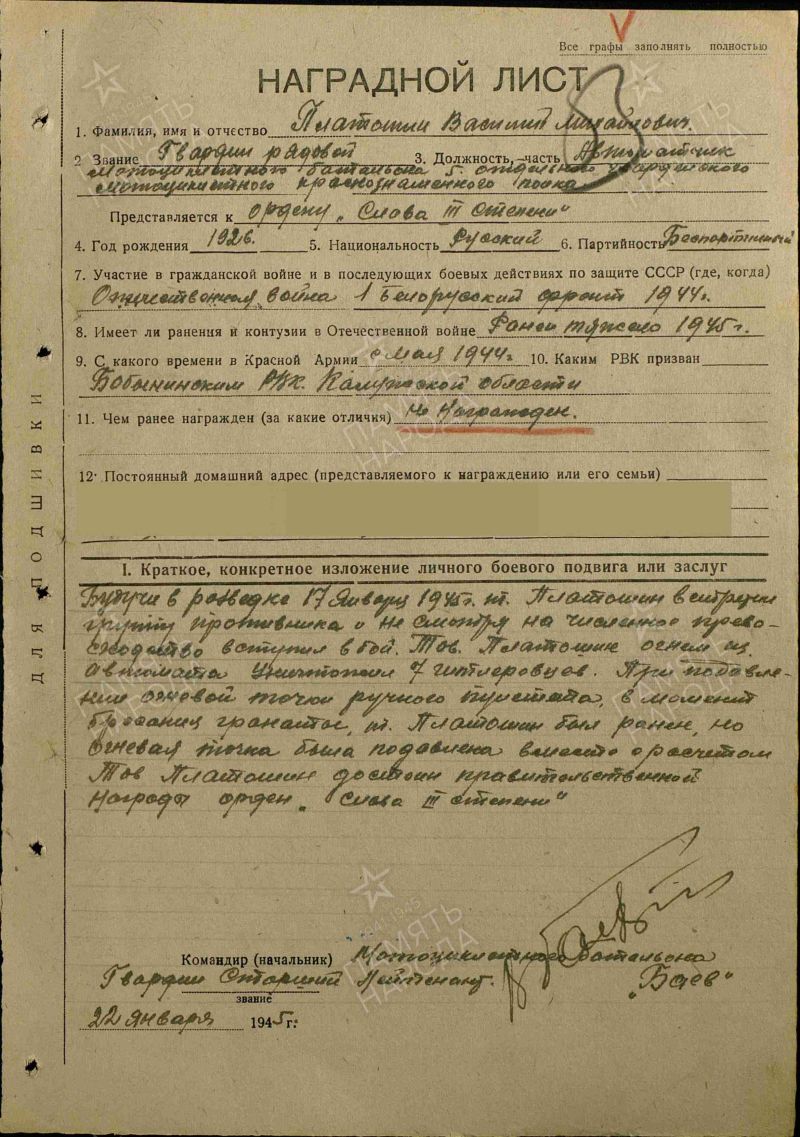 Все графы заполнять полностью
НАГРАДНОЙ ЛИСТ
1. Фамилия, имя и отчество Платошин Василий Михайлович.
2 Звание Гвардии рядовой 3. Должность, часть Автоматчик
мотоциклетного батальона 5 отдельного гвардейского
мотоциклетного краснознаменного полка
Представляется к ордену „Слова III степени"
4. Год рождения 1926. 5. Национальность Русский 6. Партийность Беспартийный
7. Участие в гражданской войне и в последующих боевых действиях по защите СССР (где, когда)
Отечественная война 1 Белорусский фронт 1944г.
8. Имеет ли ранения и контузии в Отечественной войне Ранен тяжело 1945г.
9. С какого времени в Красной Армии с мая 1944г 10. Каким РВК призван
Бабынинским РВК. Калужской области
11. Чем ранее награжден (за какие отличия) не награжден.
12. Постоянный домашний адрес (представляемого к награждению или его семьи)
ДЛЯ ПОДШИВКИ
I. Краткое, конкретное изложение личного боевого подвига или заслуг
Будучи в разведке 17 Января 1945г. т. Платошин встретил
группу противника и не смотря на численное прево-
сходство вступил в бой. Тов. Платошин огнем из
автомата уничтожил 7 гитлеровцев. При подавле-
нии огневой точки ручного пулемета, в момент
бросания гранаты, т. Платошин был ранен, но
огневая точка была подавлена вместе с расчетом
Тов Платошин достоин правительственной
награды орден „Слава III степени"
Командир (начальник) Мотоциклетного батальона
Гвардии Старший Лейтенант. „Баев"
звание
22 января 1945г.
ПАМЯТЬ НАРОДА